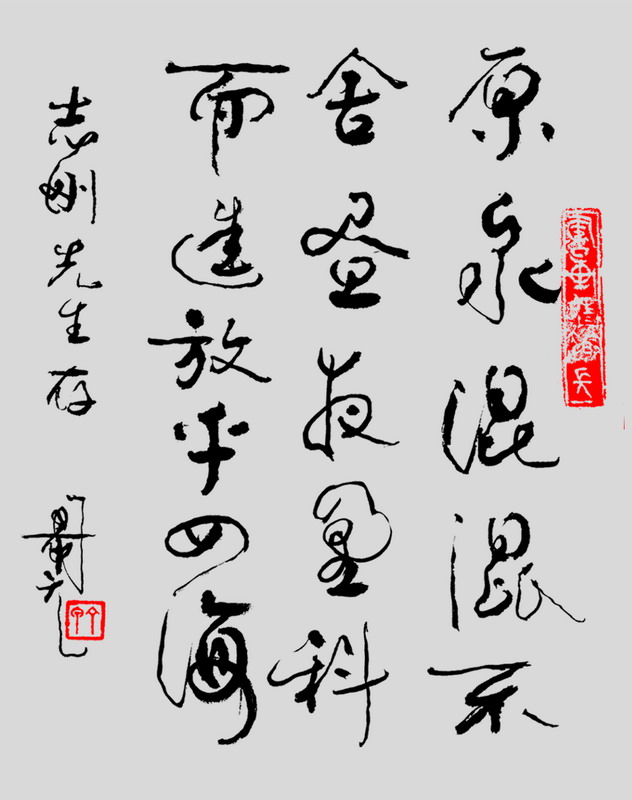 原泉混混不
舍昼夜盈科
而進放乎四海
志刚先生存